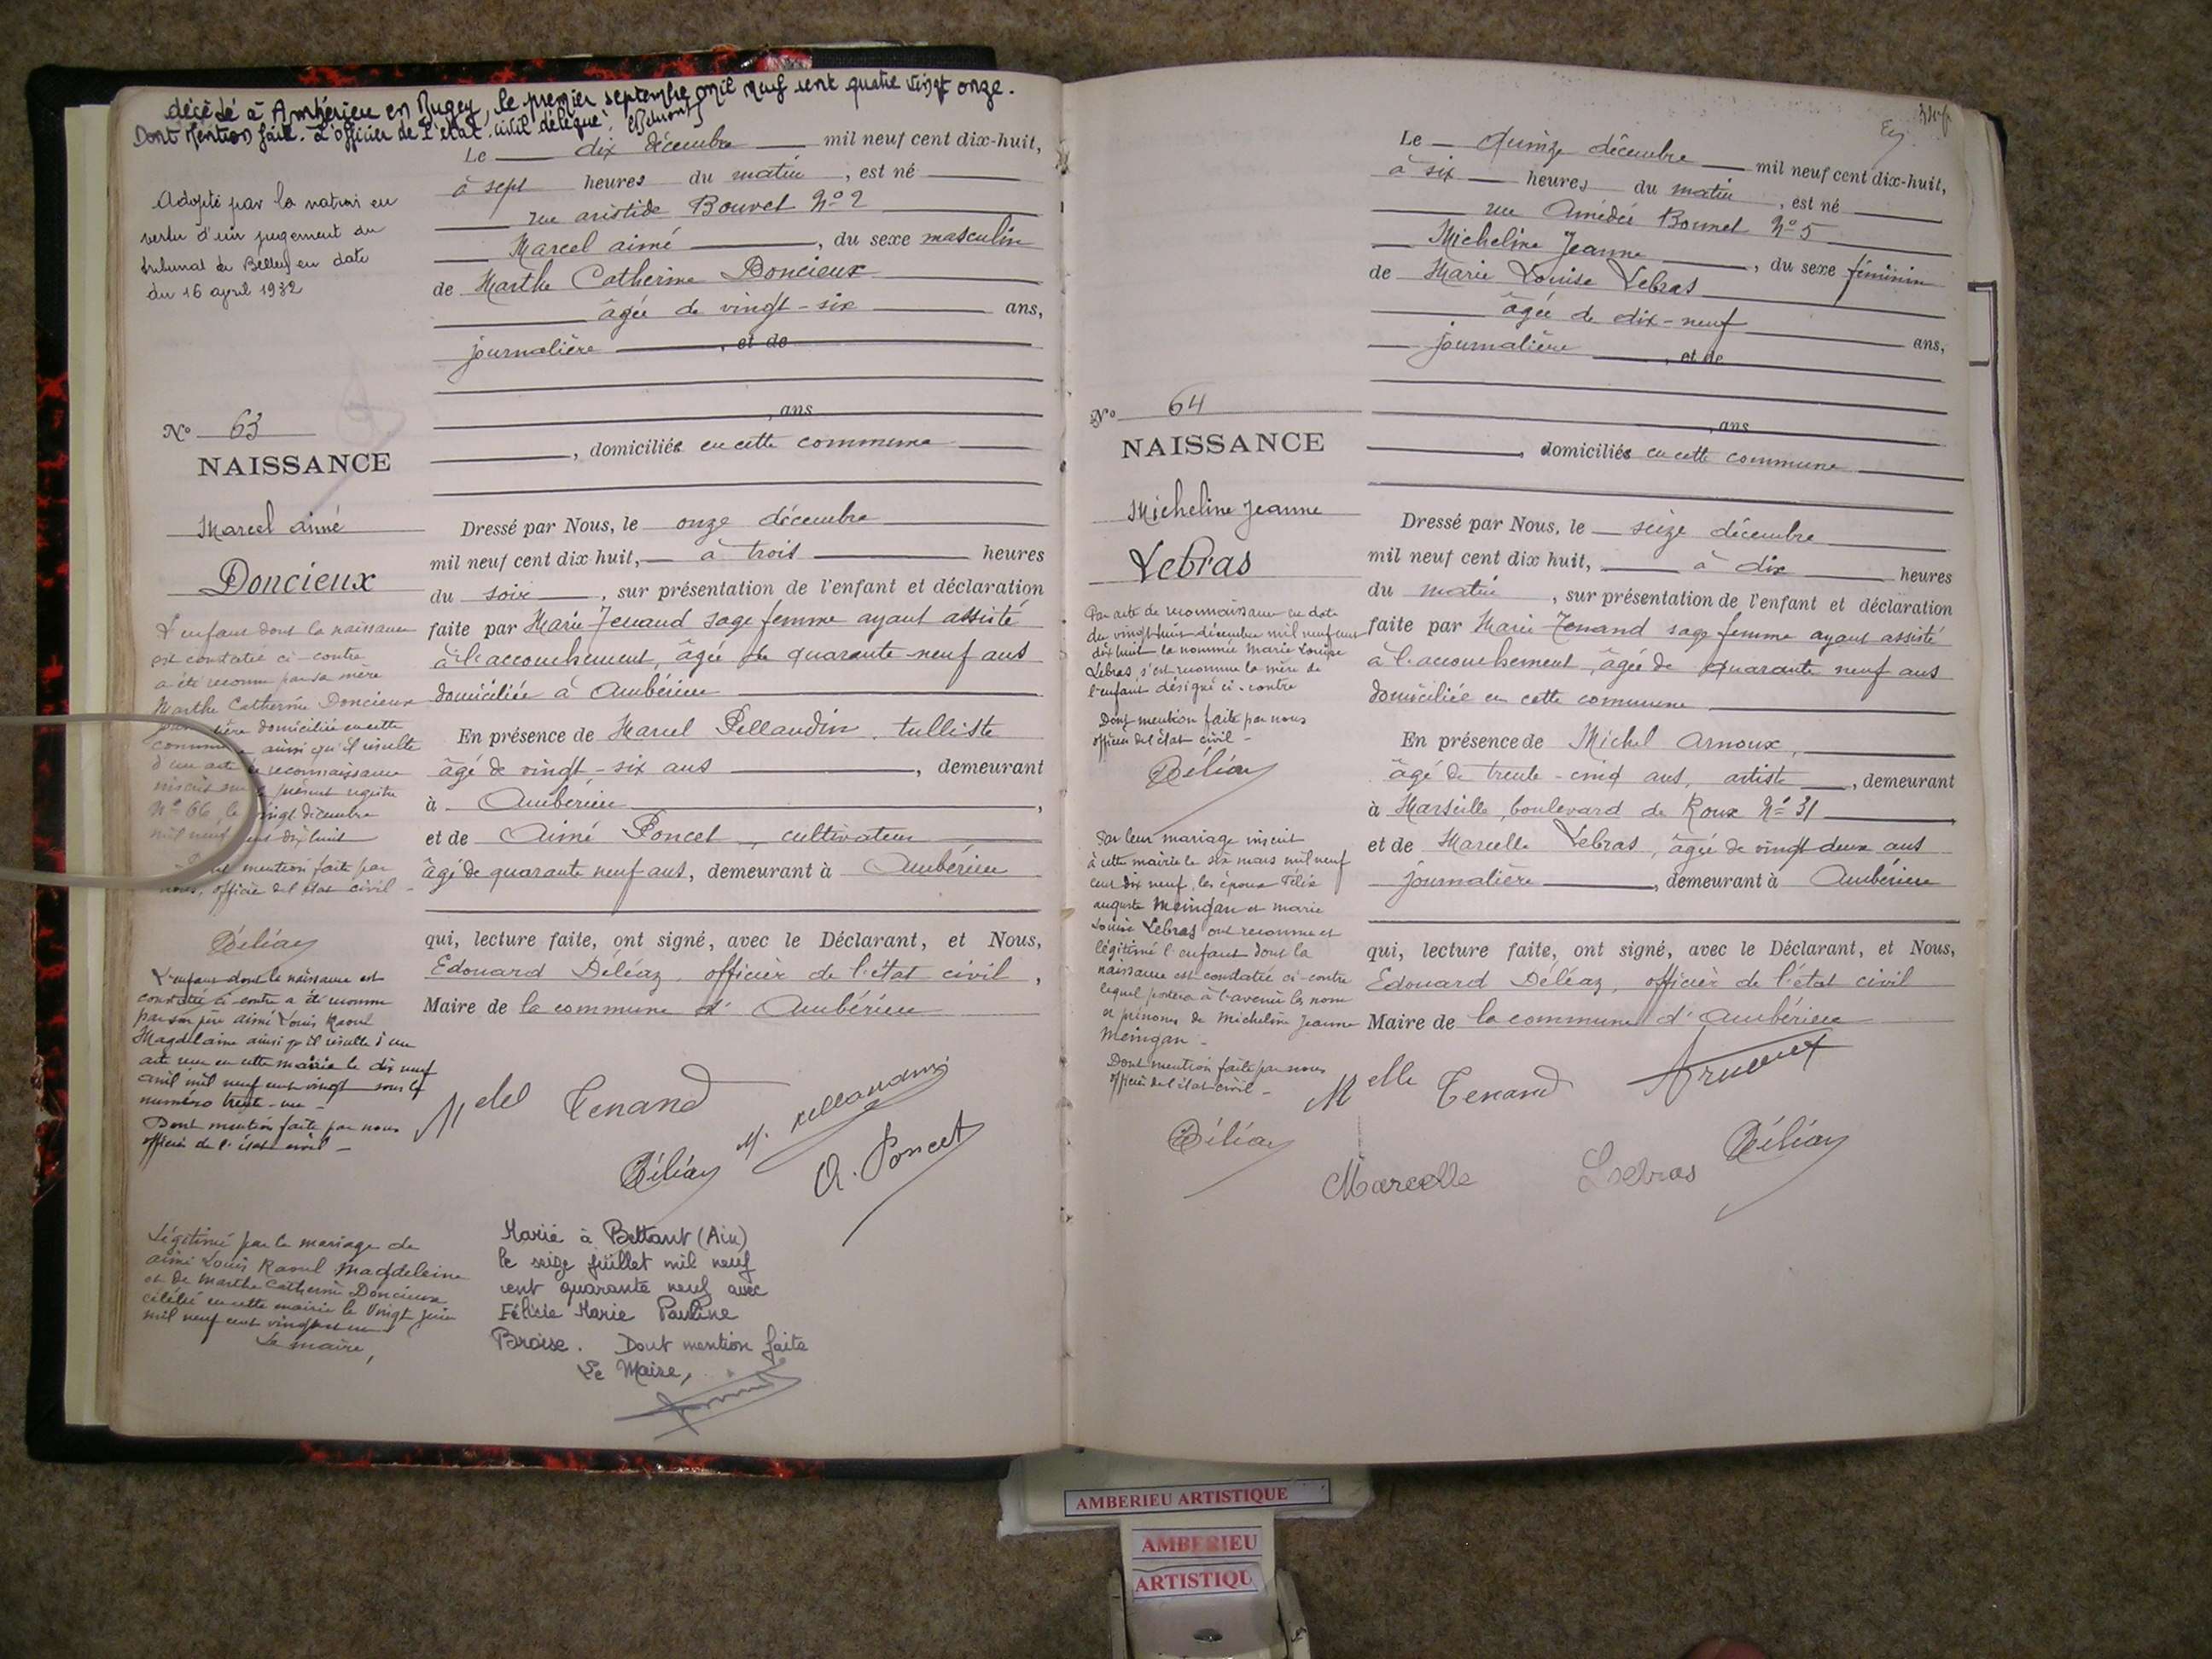 décédé à Ambérieu en Bugey, le premier septembre mil neuf cent quatre vingt onze.
Dont Mention faite. L'officier de l'état civil délégué.
Le dix décembre mil neuf cent dix-huit,
à sept heures du matin, est né
rue aristide Bouvet No 2
Marcel aimé, du sexe masculin
de Marthe Catherine Doncieux
âgée de vingt-six ans,
journalière, et de
, ans
, domiciliée en cette commune
Adopté par la nation en
vertu d'un jugement du
tribunal de Belley en date
du 16 avril 1932
No 63
NAISSANCE
Marcel aimé
Doncieux
Dressé par Nous, le onze décembre
mil neuf cent dix huit, à trois heures
du soir, sur présentation de l'enfant et déclaration
faite par Marie Tenand sage femme ayant assisté
à l'accouchement, âgée de quarante-neuf ans
domiciliée à Ambérieu
En présence de Marcel Pellaudin, tulliste
âgé de vingt-six ans, demeurant
à Ambérieu,
et de Aimé Poncet, cultivateur
âgé de quarante neuf ans, demeurant à Ambérieu
qui, lecture faite, ont signé, avec le Déclarant, et Nous,
Edouard Déléaz, officier de l'état civil,
Maire de la commune d'Ambérieu
L'enfant dont la naissance
est constatée ci-contre
a été reconnu par sa mère
Marthe Catherine Doncieux
domiciliée en cette
commune ainsi qu'il résulte
d'un acte de reconnaissance
inscrit sur le présent registre
No 66, le vingt décembre
mil neuf cent dix huit
Dont mention faite par
nous, officier de l'état civil -
Déléaz
L'enfant dont la naissance est
constatée ci-contre a été reconnu
par son père aimé Louis Raoul
Magdelaine ainsi qu'il résulte d'un
acte reçu en cette mairie le dix neuf
avril mil neuf cent vingt sous le
numéro trente-un -
Dont mention faite par nous
officier de l'état civil -
Tenand
M. Pellaudin
Déléaz
A. Poncet
Légitimé par le mariage de
aimé Louis Raoul Magdeleine
et de Marthe Catherine Doncieux
célébré en cette mairie le vingt juin
mil neuf cent vingt et un
Le maire,
Marié à Bettant (Ain)
le seize juillet mil neuf
cent quarante neuf avec
Félicie Marie Pauline
Broise. Dont mention faite
Le Maire,
Le quinze décembre mil neuf cent dix-huit,
à six heures du matin, est né
rue Amédée Bonnet No 5
Micheline Jeanne, du sexe féminin
de Marie Louise Lebras
âgée de dix-neuf ans,
journalière, et de
, ans
, domiciliée en cette commune
No 64
NAISSANCE
Micheline Jeanne
Lebras
Dressé par Nous, le seize décembre
mil neuf cent dix huit, à dix heures
du matin, sur présentation de l'enfant et déclaration
faite par Marie Tenand sage femme ayant assisté
à l'accouchement, âgée de quarante neuf ans
domiciliée en cette commune
En présence de Michel Arnoux,
âgé de trente-cinq ans, artiste, demeurant
à Marseille, boulevard de Roux No 31
et de Marcelle Lebras, âgée de vingt deux ans
journalière, demeurant à Ambérieu
qui, lecture faite, ont signé, avec le Déclarant, et Nous,
Edouard Déléaz, officier de l'état civil
Maire de la commune d'Ambérieu
Par acte de reconnaissance en date
du vingt huit décembre mil neuf cent
dix huit la nommée Marie Louise
Lebras, s'est reconnue la mère de
l'enfant désigné ci-contre
Dont mention faite par nous
officier de l'état civil -
Déléaz
Par leur mariage inscrit
à cette mairie le six mars mil neuf
cent dix neuf, les époux Félix
auguste Meingan et marie
Louise Lebras ont reconnu et
légitimé l'enfant dont la
naissance est constatée ci-contre
lequel portera à l'avenir les nom
et prénoms de Micheline Jeanne
Meingan -
Dont mention faite par nous
officier de l'état civil -
Déléaz
Melle Tenand
Arnoux
Marcelle Lebras
Déléaz
AMBERIEU ARTISTIQUE
AMBERIEU
ARTISTIQU